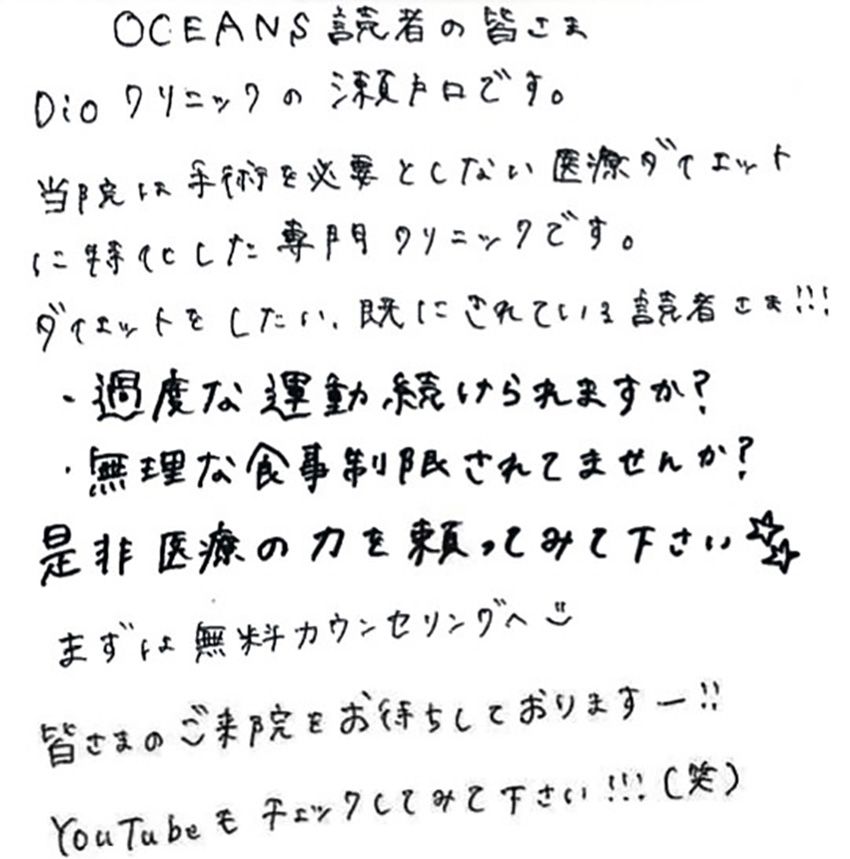 OCEANS読者の皆さま
Dioクリニックの瀬戸口です。
当院は手術を必要としない医療ダイエット
に特化した専門クリニックです。
ダイエットをしたい、既にされている読者さま!!!
・過度な運動続けられますか?
・無理な食事制限されてませんか?
是非医療の力を頼ってみて下さい☆☆
まずは無料カウンセリングへ
皆さまのご来院をお待ちしておりますー!!
YouTubeもチェックしてみて下さい!!!(笑)